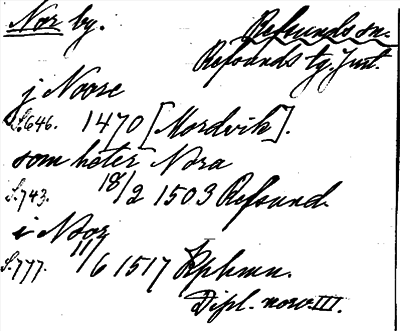 Nor by.
Refsunds sn.
Refsunds tg. Jmt.
j Noore
S.646. 1470 [Mordvik].
som heter Nora
S.743. 18/2 1503 Refsund.
i Nor
S.777. 11/6 1517
Dipl. norv. III.